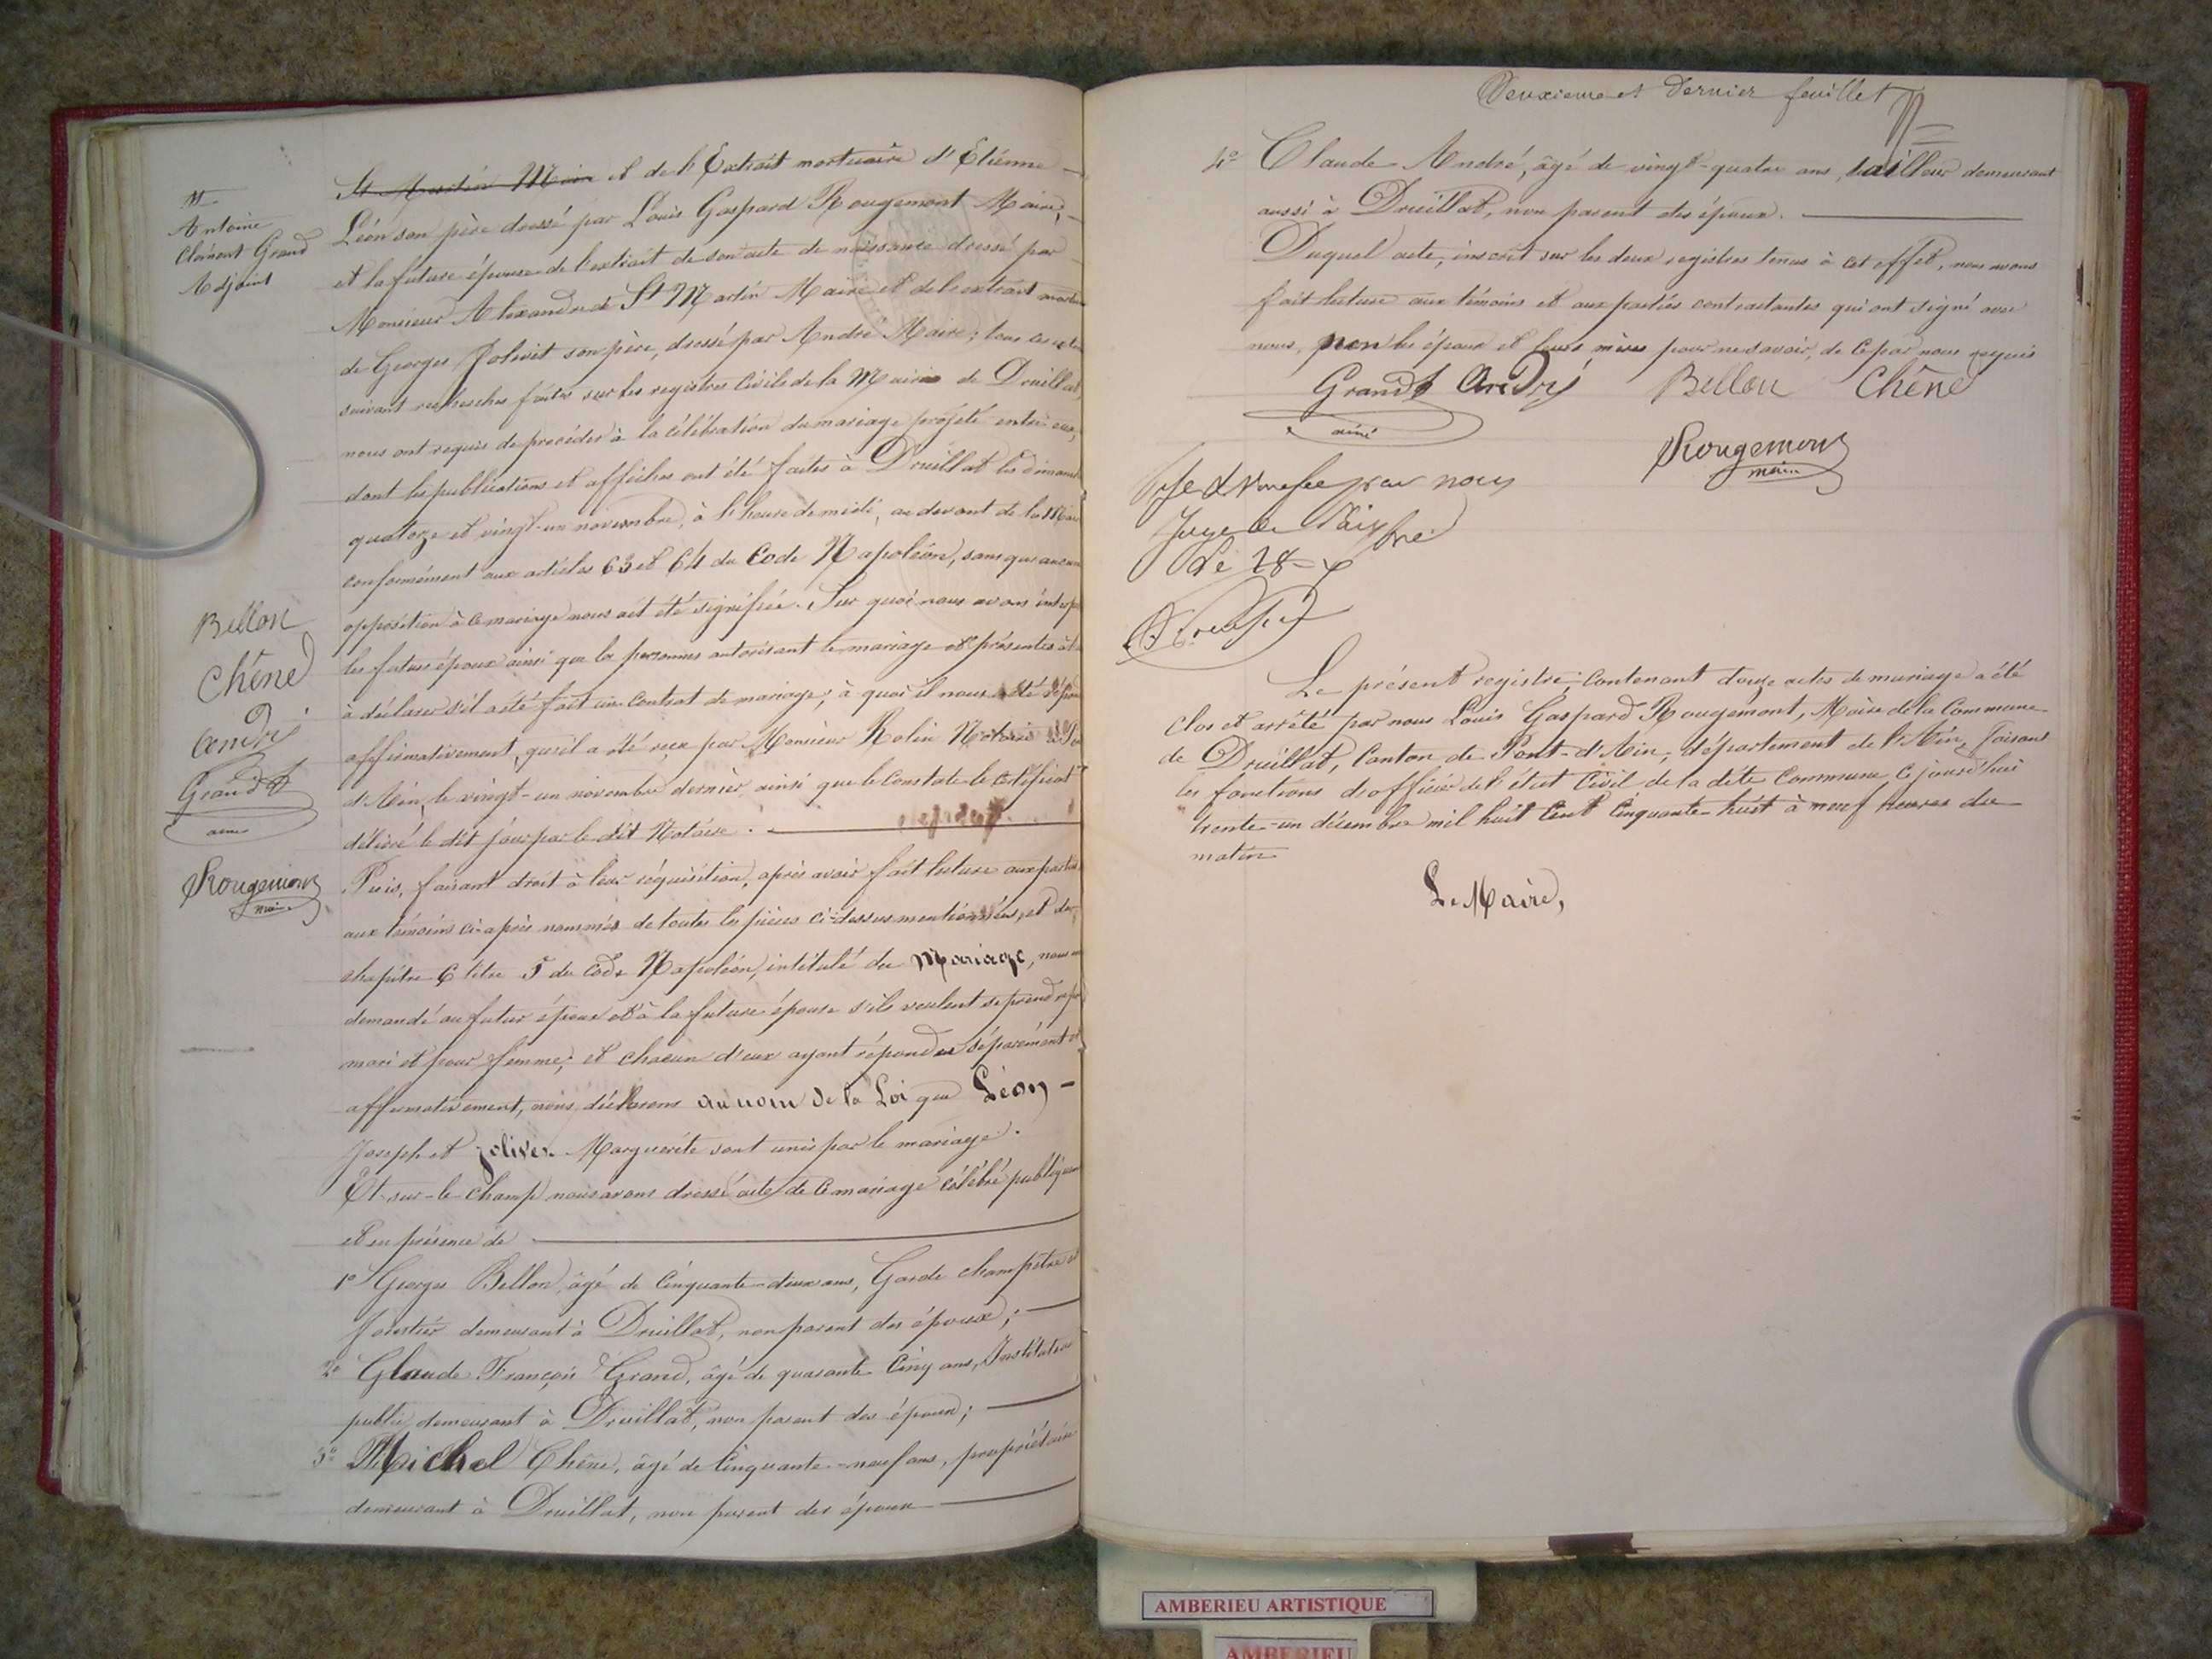 M
Antoine
Clément Grand
Adjoint
St Martin Maire et de l'Extrait mortuaire d'Etienne
Léon son père dressé par Louis Gaspard Rougemont Maire,
et la future épouse de l'extrait de son acte de naissance dressé par
Monsieur Alexandre de St Martin Maire et de l'extrait
de Georges Jolivet son père, dressé par André Maire; tous
suivant recherches faites sur les registres Civils de la Mairie de Druillat,
nous ont requis de procéder à la célébration du mariage projeté entre eux,
dont les publications et affiches ont été faites à Druillat les
quatorze et vingt-un novembre, à l'heure de midi, au devant de la
conformément aux articles 63 et 64 du Code Napoléon, sans qu'aucune
opposition à ce mariage nous ait été signifiée. Sur quoi nous avons
les futurs époux ainsi que les personnes autorisant le mariage et présentes
à déclarer s'il a été fait un Contrat de mariage; à quoi il nous a été
affirmativement, qu'il a été reçu par Monsieur Rolin Notaire
d'Ain, le vingt-un novembre dernier ainsi que le Constate le Certificat
délivré le dit jour par le dit Notaire.
Puis, faisant droit à leur réquisition, après avoir fait lecture aux parties
aux témoins ci-après nommés de toutes les pièces ci-dessus mentionnées, et du
chapitre 6 titre 5 du Code Napoléon, intitulé du Mariage, nous
demandé au futur époux et à la future épouse s'ils veulent se prendre
mari et pour femme; et chacun d'eux ayant répondu séparément et
affirmativement, nous déclarons au nom de la Loi que Léon
Joseph et Jolivet Marguerite sont unis par le mariage.
Et sur-le-champ nous avons dressé acte de ce mariage célébré
et en présence de
1° Georges Bellon, âgé de Cinquante-deux ans, Garde champêtre et
forestier demeurant à Druillat, non parent des époux;
2° Claude François Grand, âgé de quarante Cinq ans, Instituteur
public, demeurant à Druillat, non parent des époux;
3° Michel Chêne, âgé de Cinquante-neuf ans, propriétaire
demeurant à Druillat, non parent des époux
Bellon
Chêne
André
Grand
ainé
Rougemont
maire
Deuxième et Dernier feuillet
4° Claude André, âgé de vingt-quatre ans, tailleur demeurant
aussi à Druillat, non parent des époux.
Duquel acte, inscrit sur les deux registres tenus à cet effet, nous avons
fait lecture aux témoins et aux parties contractantes qui ont signé avec
nous, non les époux et leurs mères pour ne savoir, de ce par nous requis
Grand André Bellon Chêne
ainé
Rougemont
maire
par nous
Juge de Paix
Le présent registre, Contenant douze actes de mariage a été
Clos et arrêté par nous Louis Gaspard Rougemont, Maire de la Commune
de Druillat, Canton de Pont-d'Ain, département de l'Ain, faisant
les fonctions d'officier de l'état Civil de la dite Commune, ce jourd'hui
trente-un décembre mil huit Cent Cinquante-huit à neuf heures du
matin
Le Maire,
AMBERIEU ARTISTIQUE
AMBERIEU